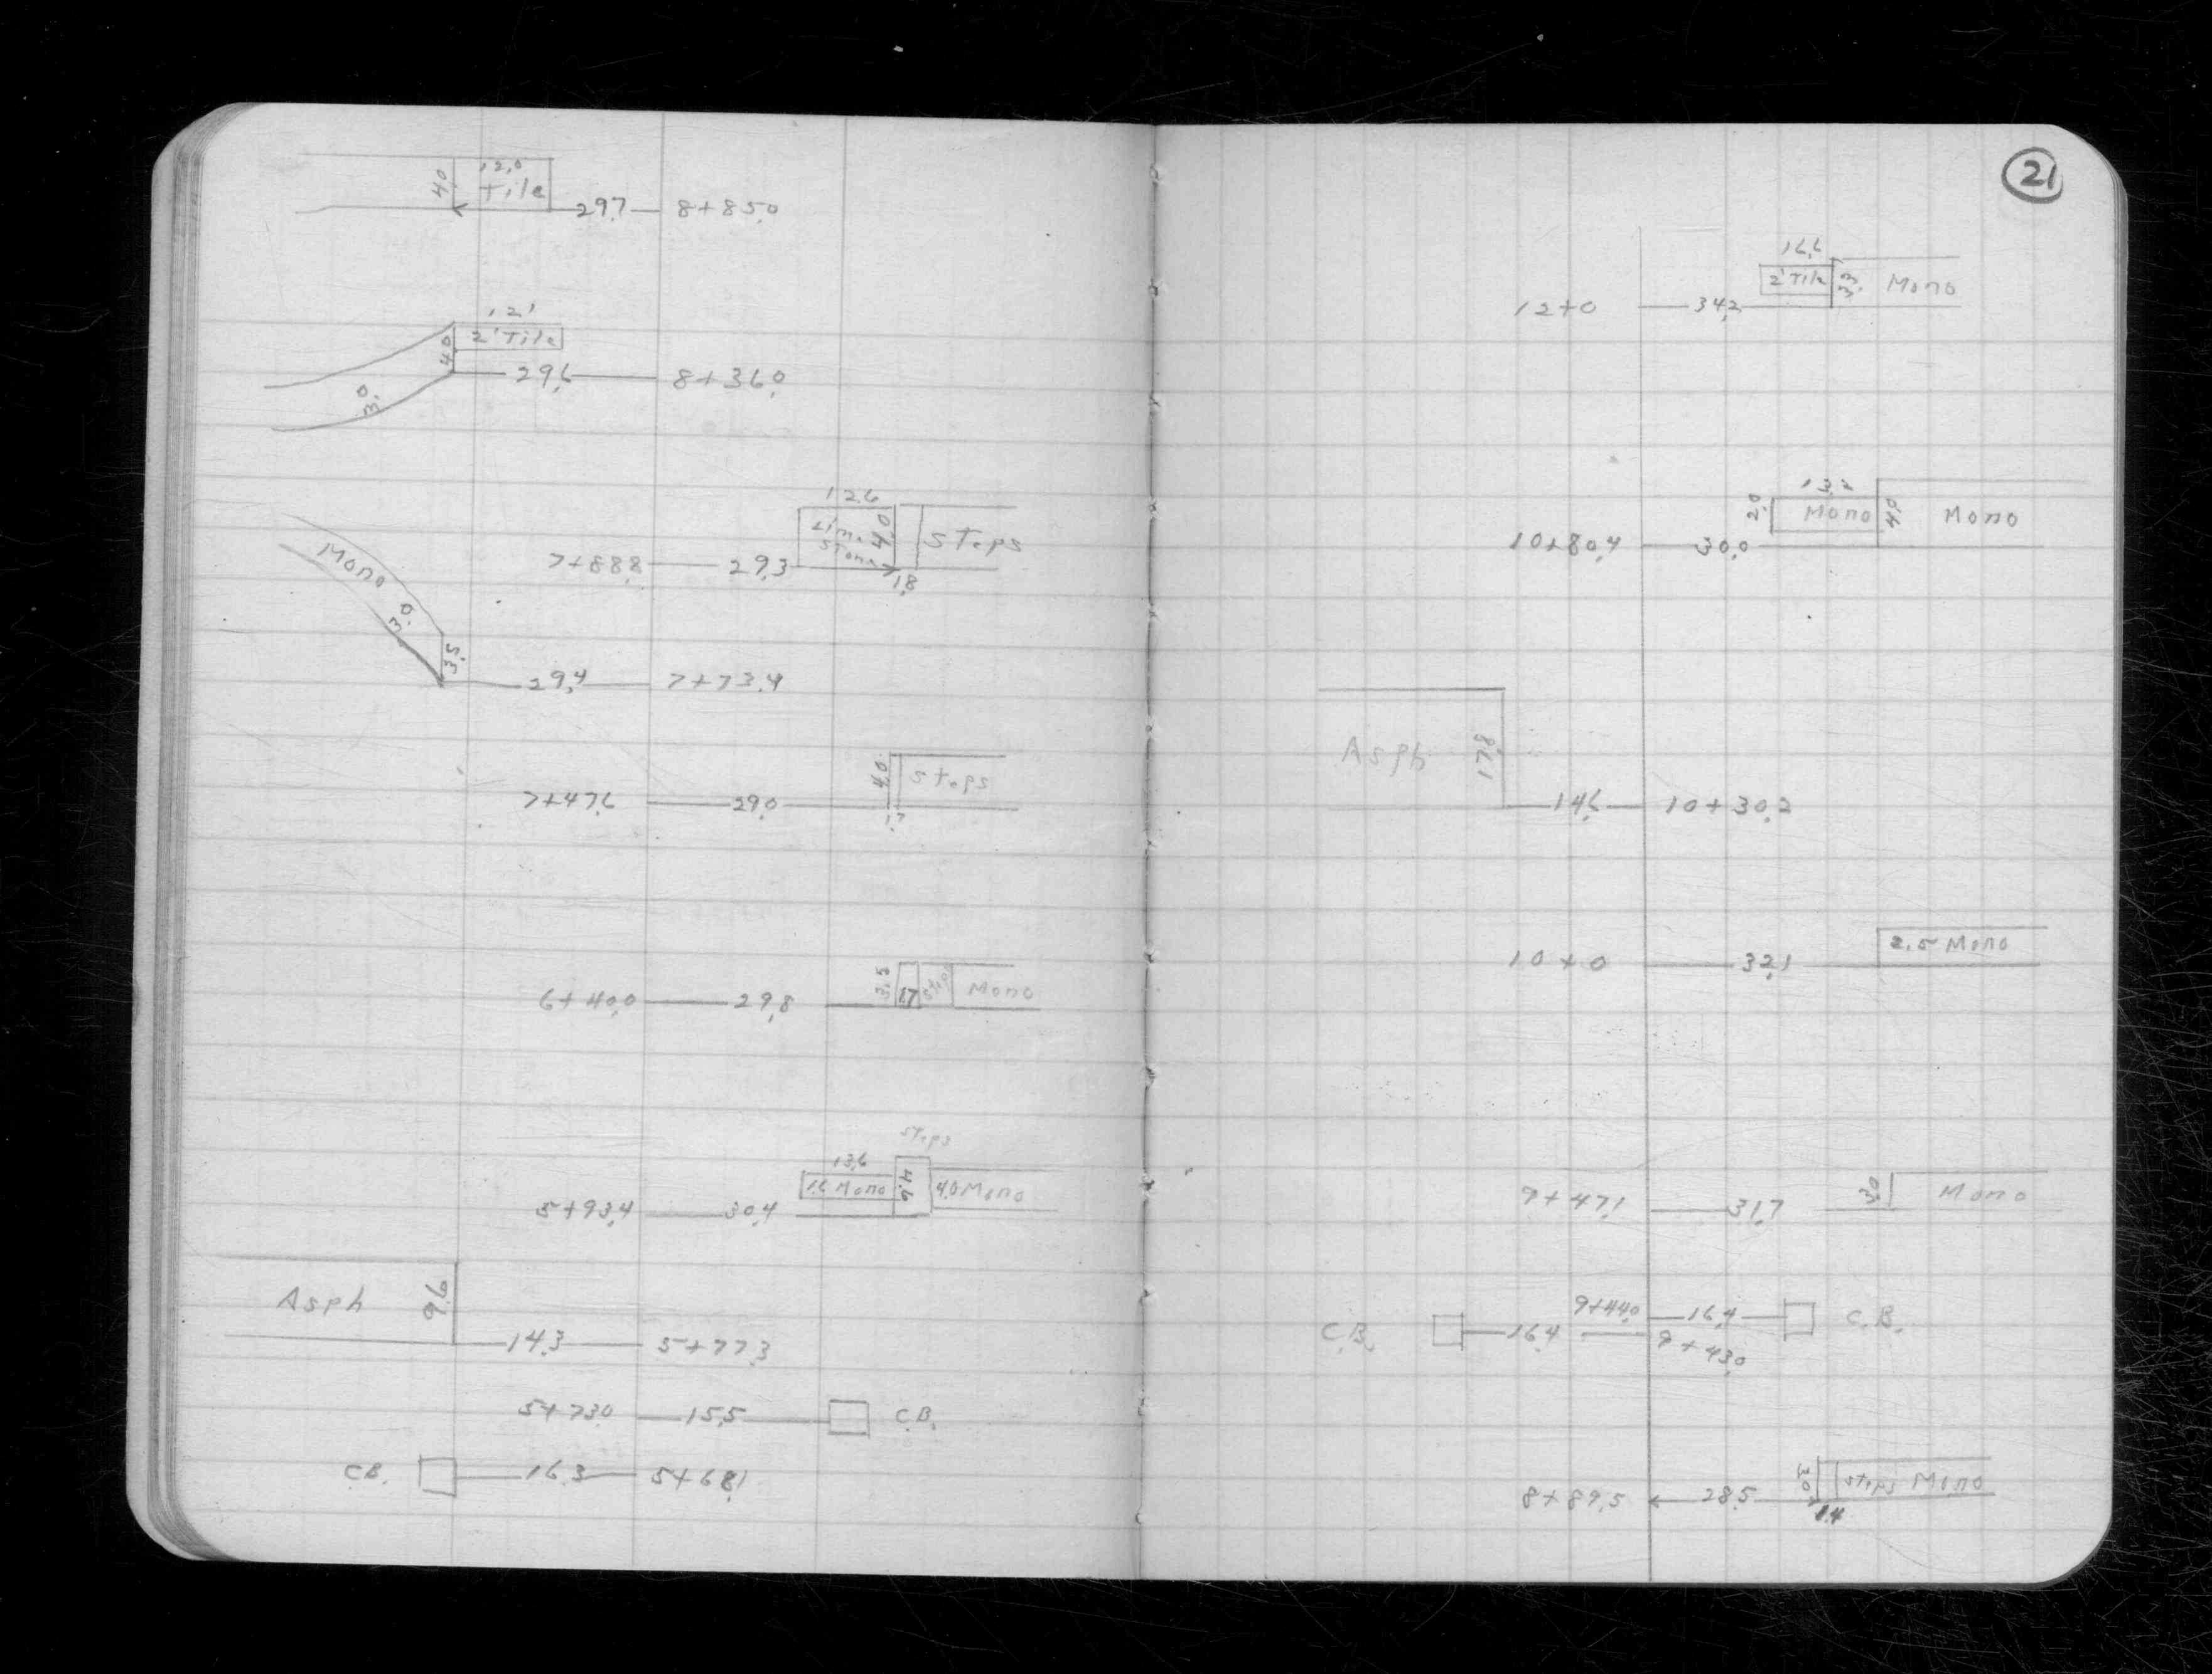 12.0
4.0 Tile
29.7 8+85.0
12'
2' Tile
4.0
29.6 8+36.0
3.0
12.6
Lime Stone 4.0 Steps
7+88.8 29.3
1.8
Mono
3.0
3.5
29.4 7+73.4
4.0 Steps
7+47.6 29.0
1.7
3.5 1.7 Steps Mono
6+40.0 29.8
Steps
13.6
1.6 Mono 4.6 4.0 Mono
5+93.4 30.4
Asph 9.6
14.3 5+77.3
5+73.0 15.5 C.B.
C.B. 16.3 5+68.1
21
16.6
2' Tile 3.3 Mono
12+0 34.2
2.0 Mono 4.0 Mono
10+80.4 30.0
Asph 17.8
14.6 10+30.2
2.5 Mono
10+0 32.1
3.0 Mono
9+47.1 31.7
9+44.0 16.4 C.B.
C.B. 16.4 9+43.0
3.0 Steps Mono
8+89.5 28.5
1.4